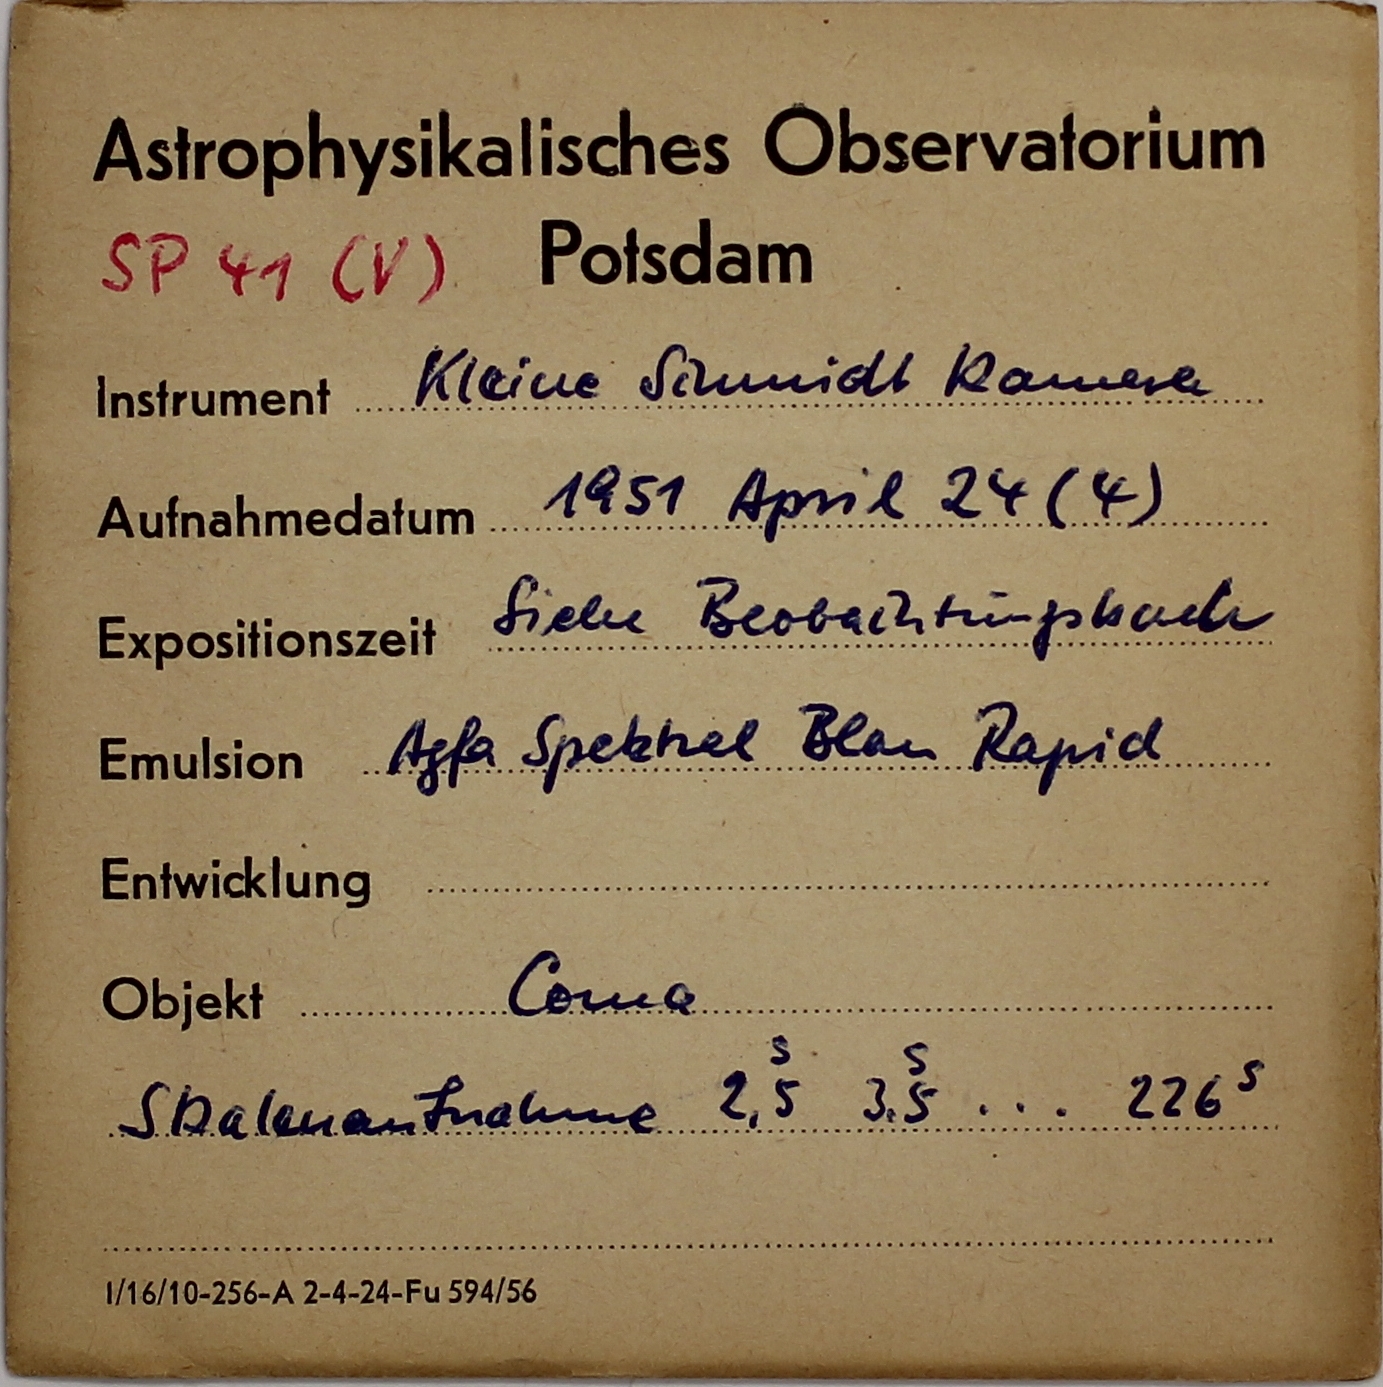 Astrophysikalisches Observatorium
SP 41 (V) Potsdam
Instrument Kleine Schmidt Kamera
Aufnahmedatum 1951 April 24 (4)
Expositionszeit Siehe Beobachtungsbuch
Emulsion Agfa Spektral Blau Rapid
Entwicklung
Objekt Coma
Skalenaufnahme 2,5^s 3,5^s ... 226^s
I/16/10-256-A 2-4-24-Fu 594/56